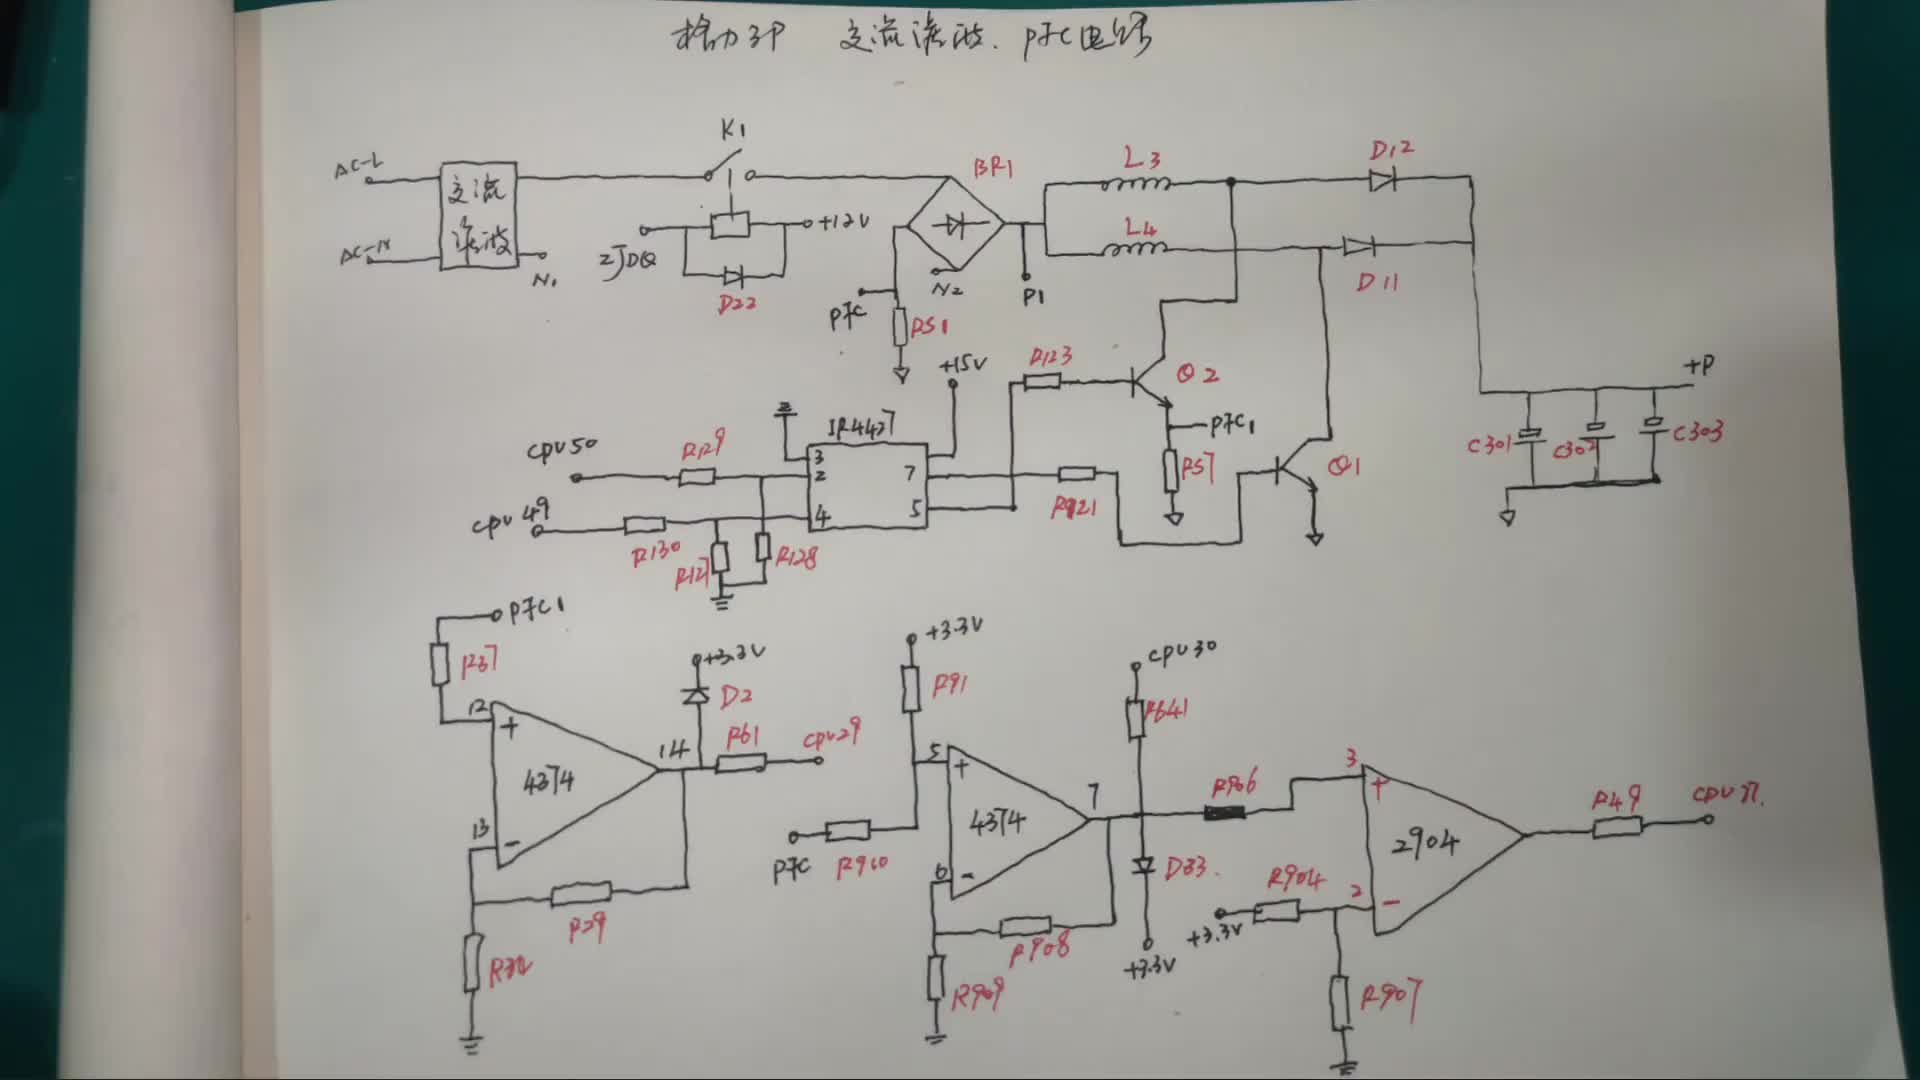 格力3P 交流滤波. PFC电路
K1
AC-L
交流
滤波
AC-N
N1
ZJDQ
+12V
D22
BR1
N2
P1
PFC
RS1
L3
L4
D12
D11
+P
C301
C302
C303
+15V
IR4427
3
2
4
7
5
CPU50
R129
CPU49
R130
R127
R128
R123
Q2
PFC1
RS7
R921
Q1
PFC1
R37
12
+
4374
13
-
14
+3.3V
D2
R61
CPU29
R39
+3.3V
R91
5
+
4374
6
-
7
PFC
R910
R908
R909
CPU30
R641
D33.
+3.3V
R906
3
+
2904
2
-
R904
+3.3V
R907
R49